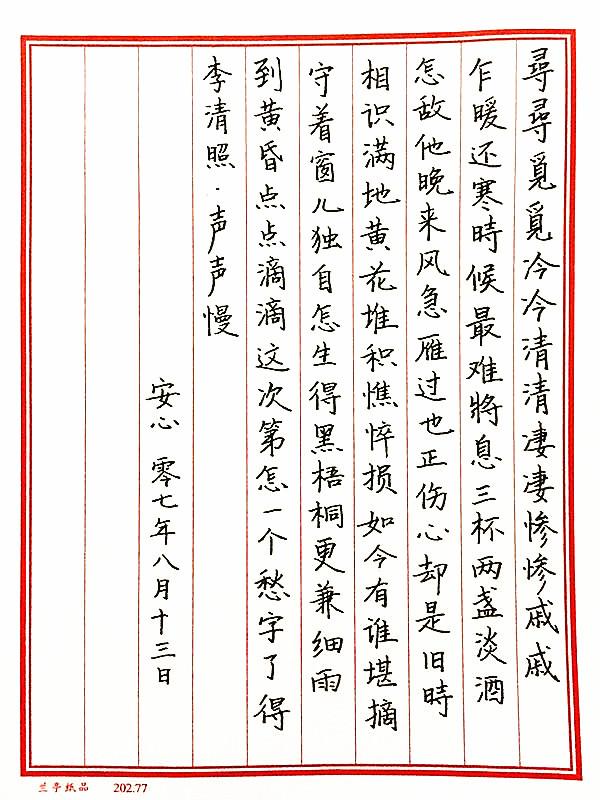 尋尋覓覓冷冷清清凄凄惨惨戚戚
乍暖还寒時候最难將息三杯两盏淡酒
怎敌他晚来风急雁过也正伤心却是旧時
相识满地黄花堆积憔悴损如今有谁堪摘
守着窗儿独自怎生得黑梧桐更兼细雨
到黄昏点点滴滴这次第怎一个愁字了得
李清照·声声慢
安心 零七年八月十三日
兰亭纸品 202.77